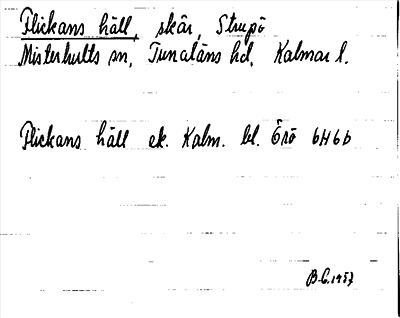 Flickans häll, skär, Strupö
Misterhults sn, Tunaläns hd, Kalmar l.
Flickans häll ek. Kalm. bl. Örö 6H6b
B.C. 1957